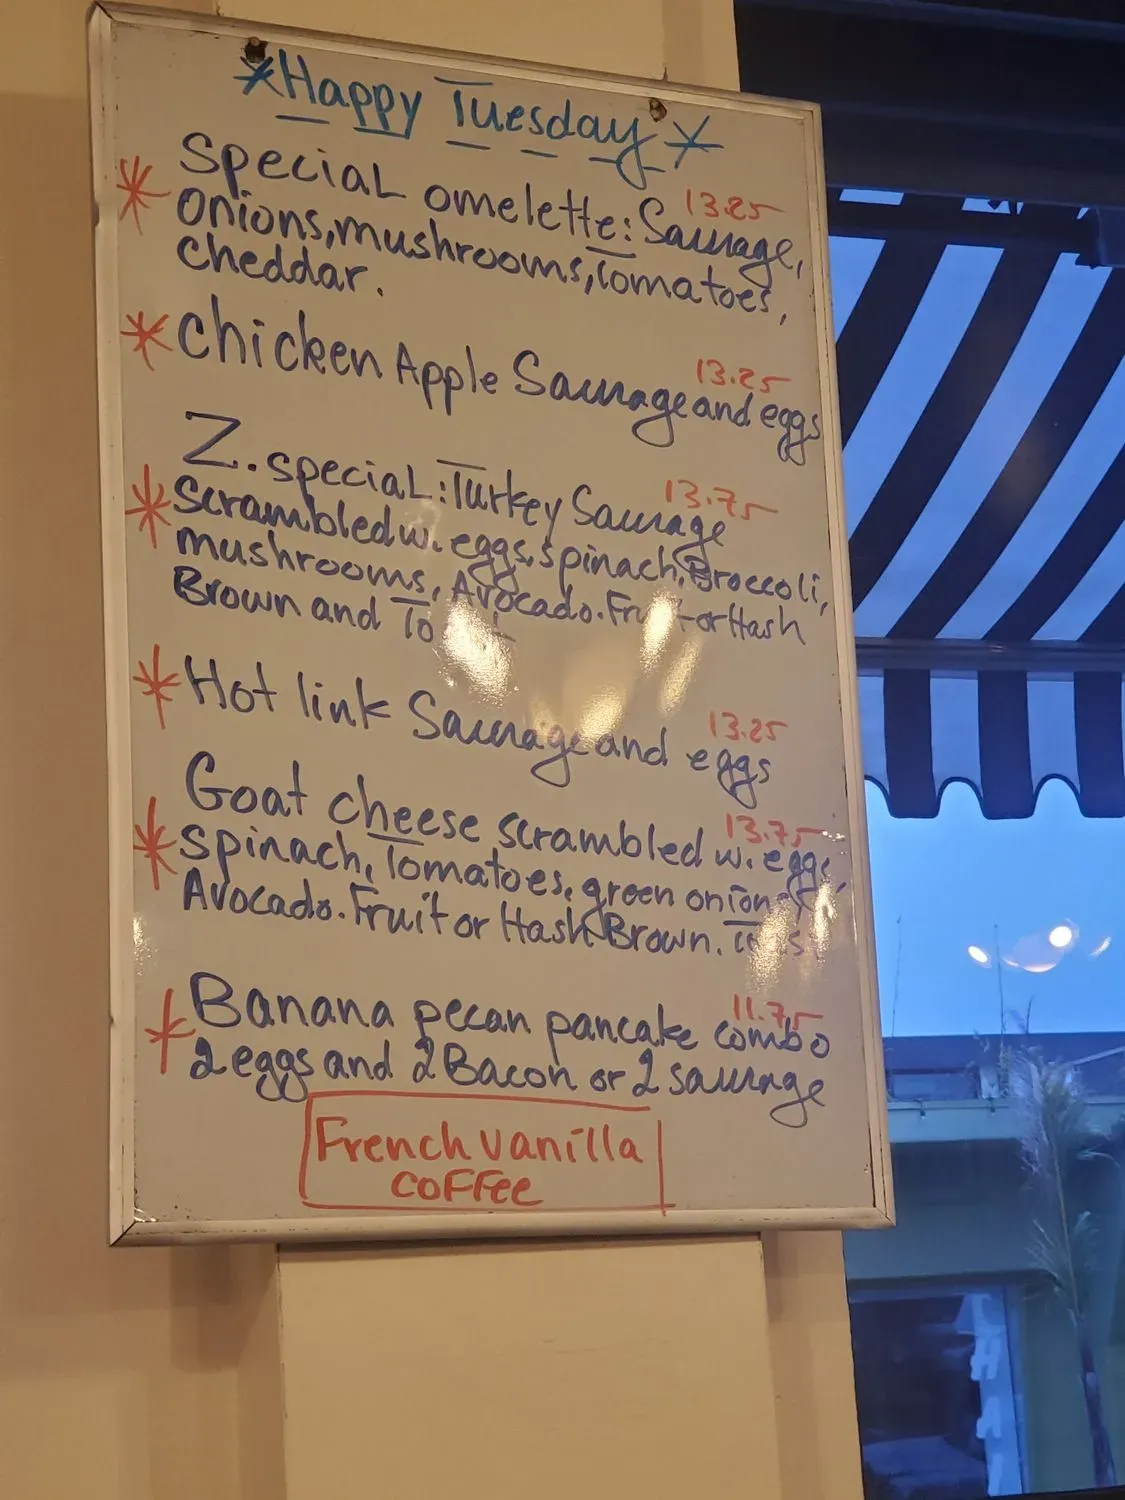 *Happy Tuesday*
Special omelette: Sausage, 13.25
onions, mushrooms, Tomatoes,
cheddar.
Chicken Apple Sausage and eggs 13.25
Z. special: Turkey Sausage 13.75
Scrambled w. eggs, spinach, Broccoli,
mushrooms, Avocado. Fruit or Hash
Brown and
Hot link Sausage and eggs 13.25
Goat cheese scrambled w. eggs, 13.75
spinach, Tomatoes, green onion
Avocado. Fruit or Hash Brown.
Banana pecan pancake combo 11.75
2 eggs and 2 Bacon or 2 sausage
French vanilla
coffee